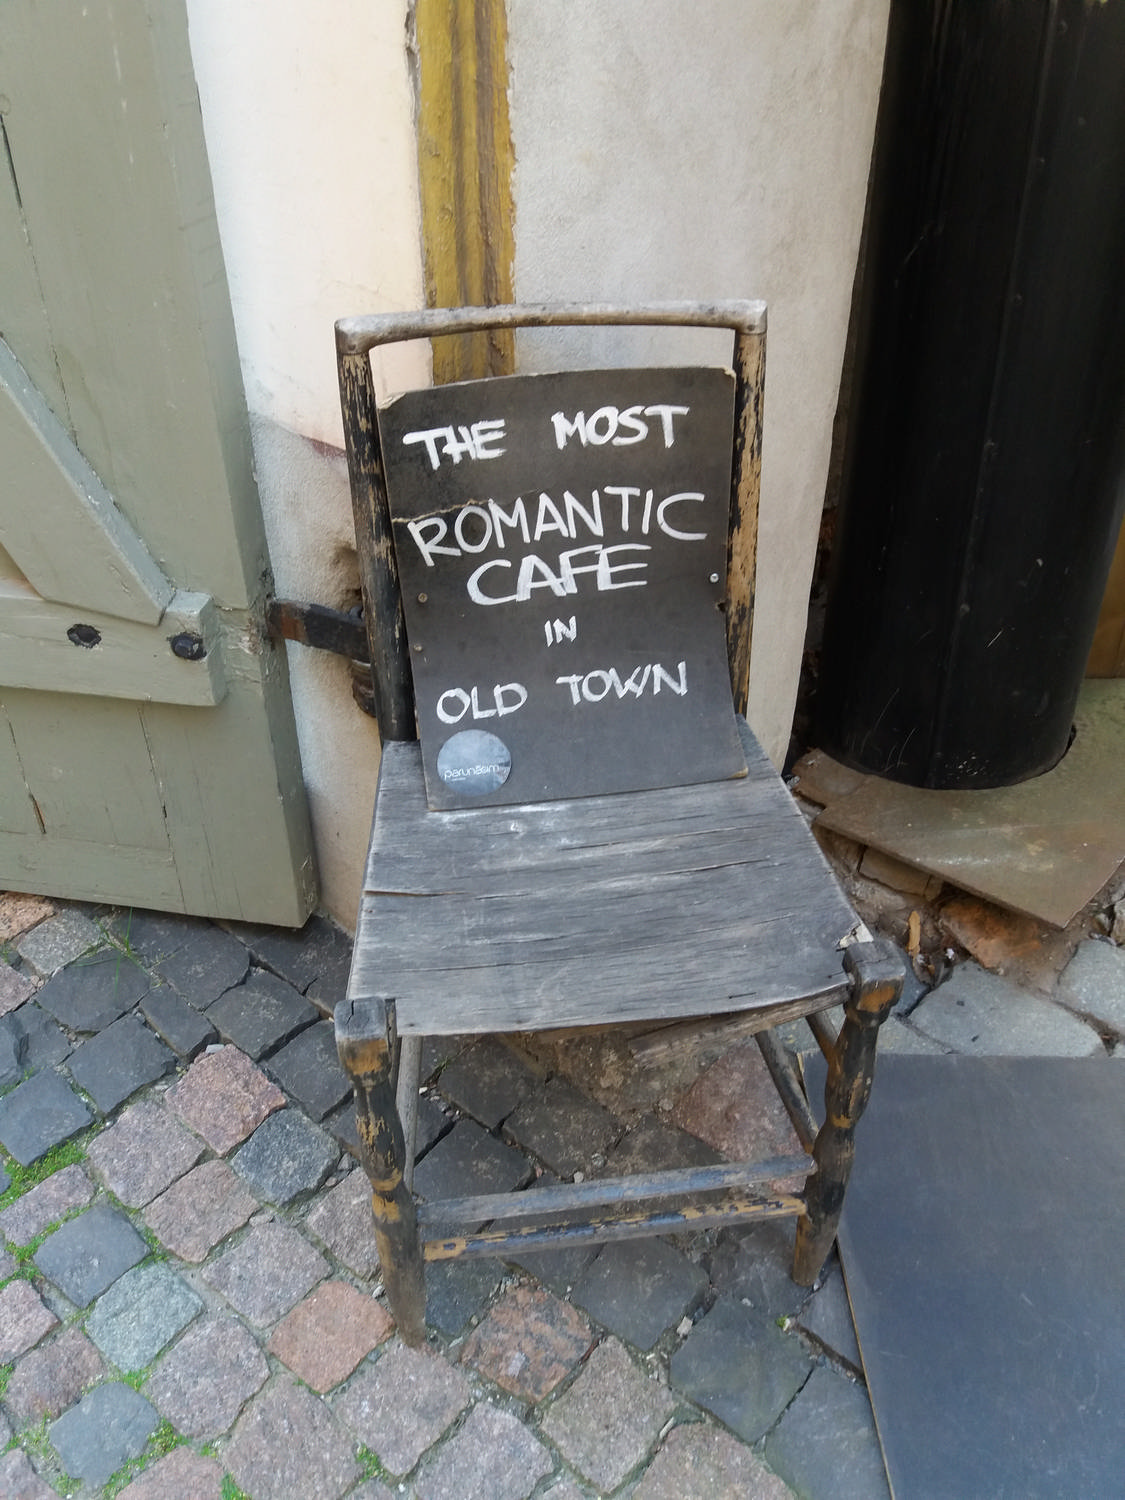 THE MOST
ROMANTIC
CAFE
IN
OLD TOWN
parunāsim